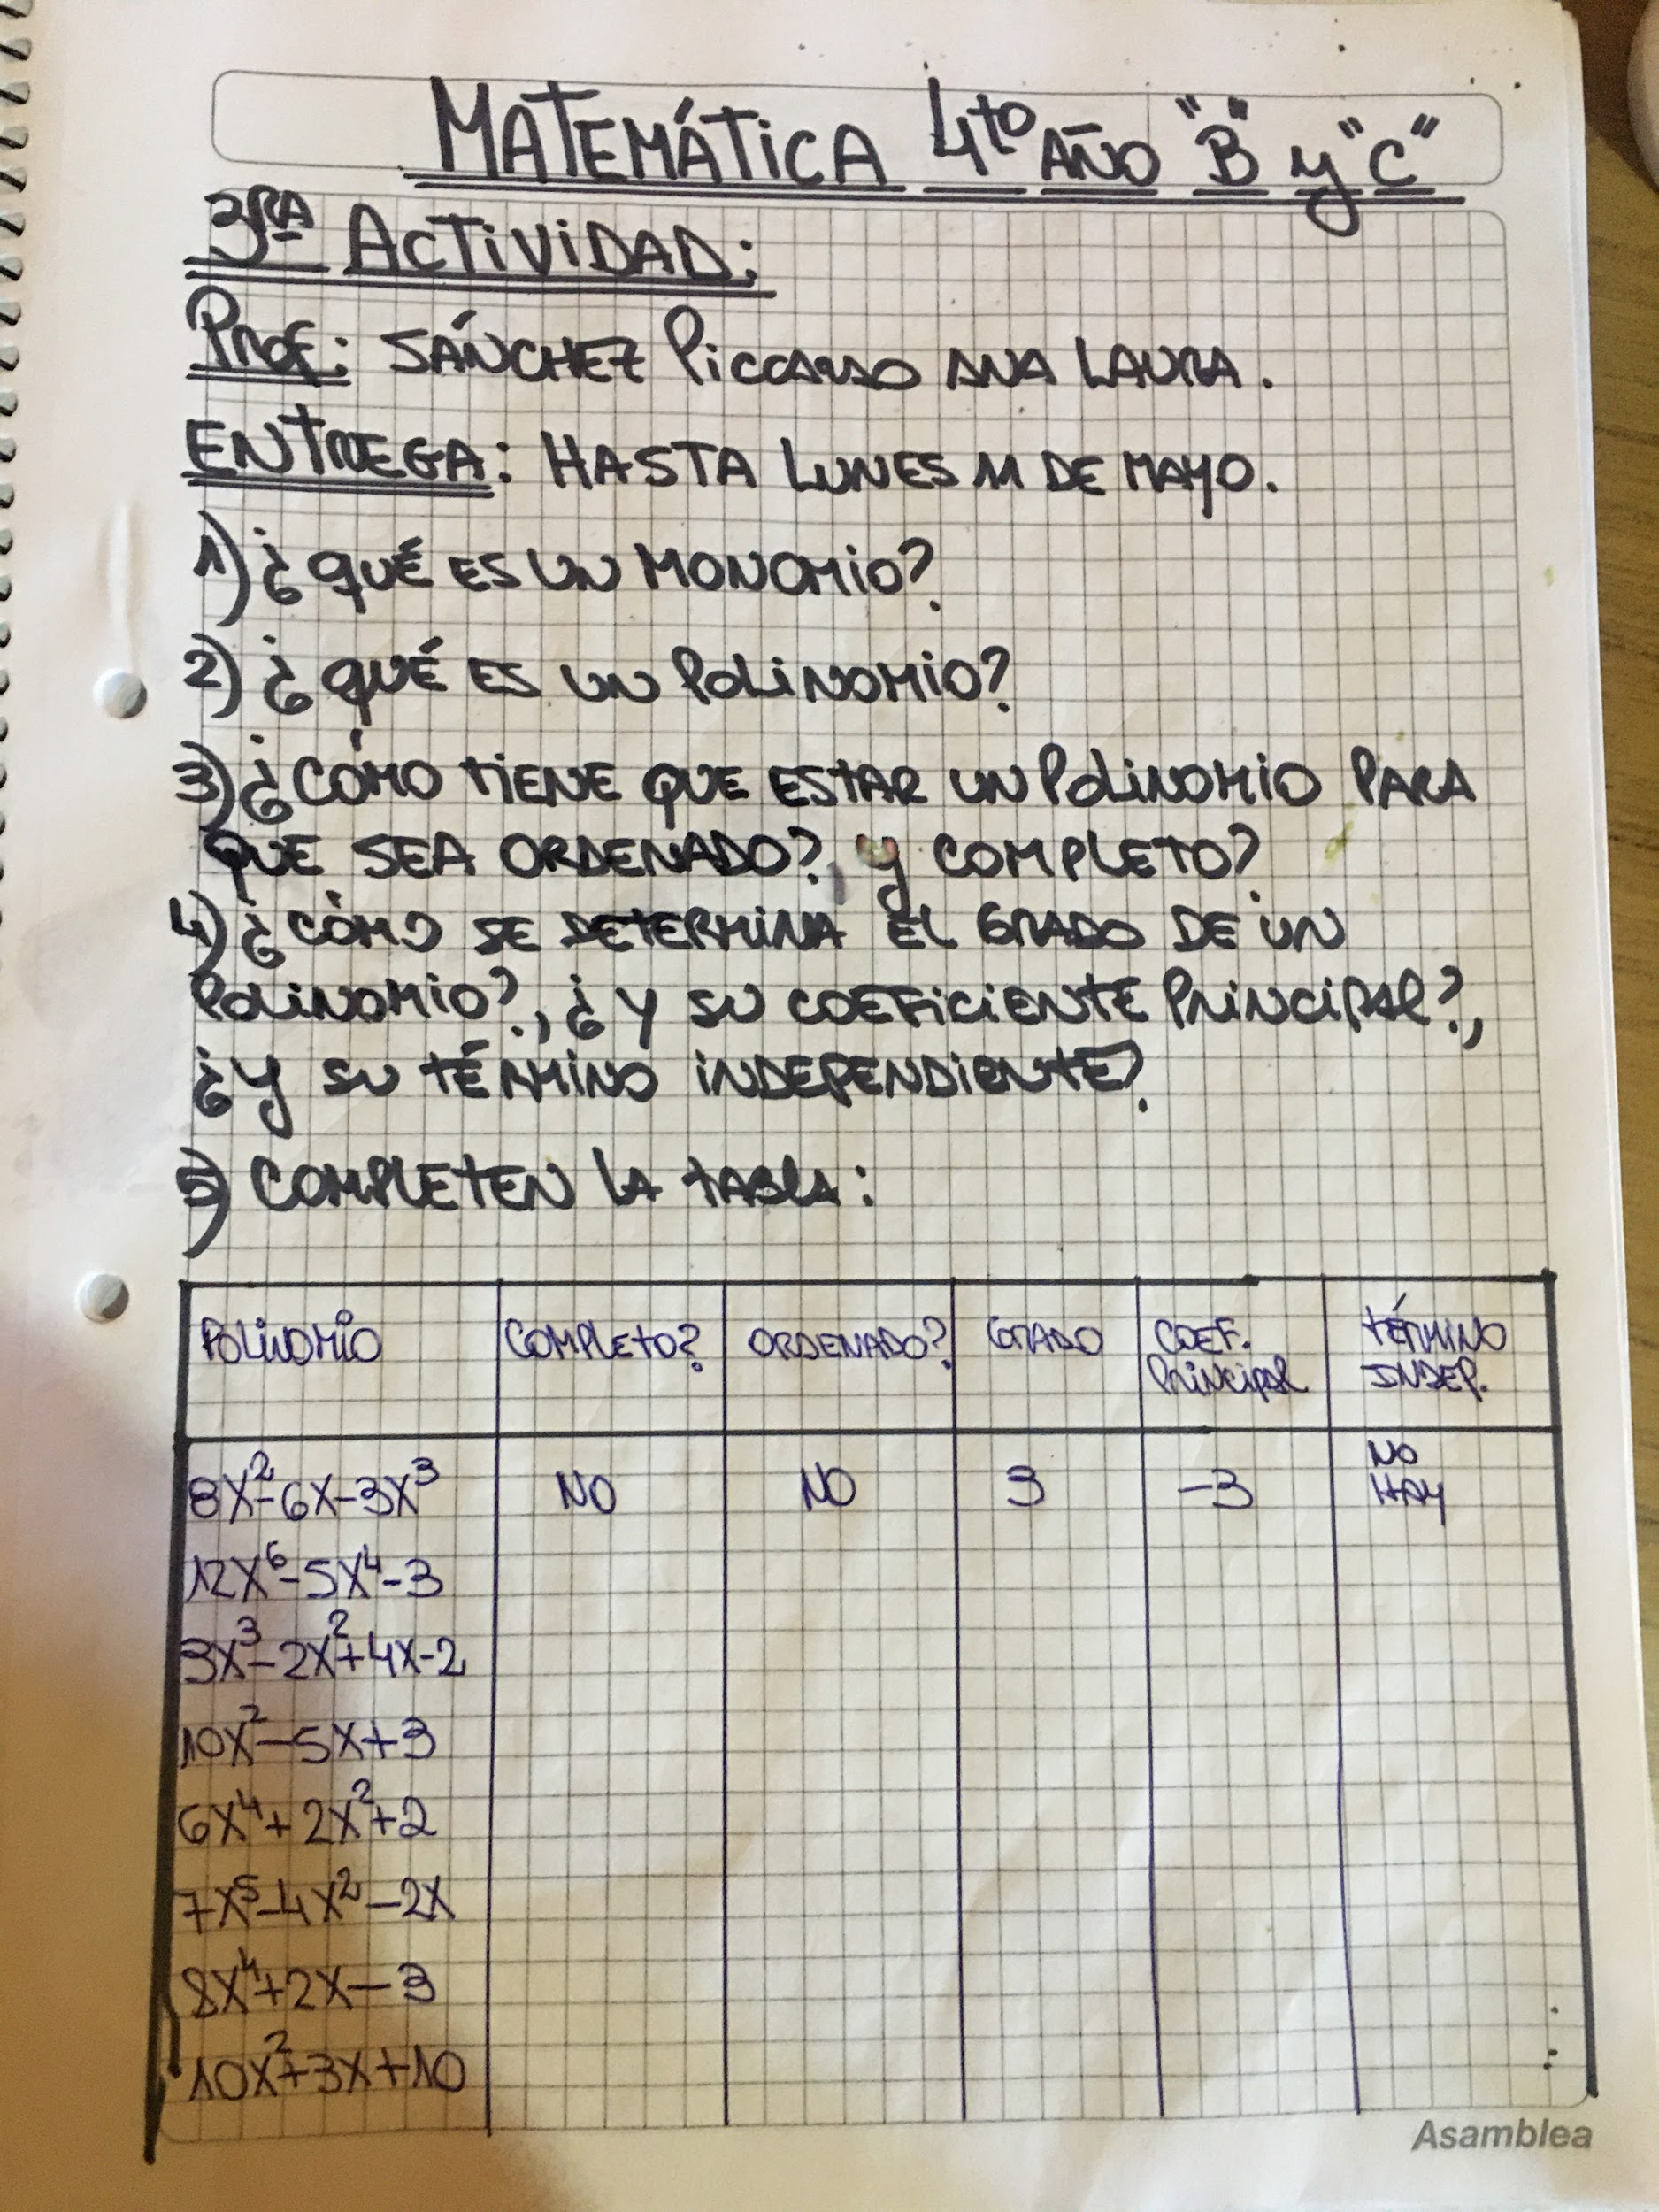 MATEMÁTICA 4to AÑO "B" y "C"
3RA ACTIVIDAD:
Prof.: SÁNCHEZ PICCARDO ANA LAURA.
ENTREGA: HASTA LUNES 11 DE MAYO.
1) ¿QUÉ ES UN MONOMIO?
2) ¿QUÉ ES UN POLINOMIO?
3) ¿CÓMO TIENE QUE ESTAR UN POLINOMIO PARA
QUE SEA ORDENADO?, y COMPLETO?
4) ¿CÓMO SE DETERMINA EL GRADO DE UN
POLINOMIO?, ¿Y SU COEFICIENTE PRINCIPAL?,
¿Y SU TÉRMINO INDEPENDIENTE?
5) COMPLETEN LA TABLA:
POLINOMIO COMPLETO? ORDENADO? GRADO COEF. PRINCIPAL TÉRMINO INDEP.
8x²-6x-3x³ NO NO 3 -3 NO HAY
12x⁶-5x⁴-3
3x³-2x²+4x-2
10x²-5x+3
6x⁴+2x²+2
7x⁵-4x²-2x
8x⁴+2x-3
10x²+3x+10
Asamblea